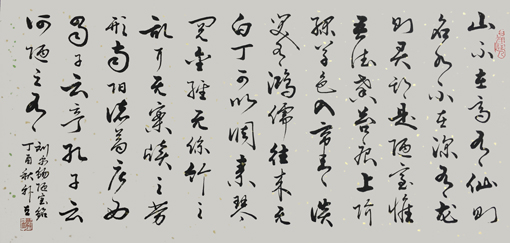 山不在高有仙则
名水不在深有龙
则灵斯是陋室惟
吾德馨苔痕上阶
绿草色入帘青谈
笑有鸿儒往来无
白丁可以调素琴
阅金经无丝竹之
乱耳无案牍之劳
形南阳诸葛庐西
蜀子云亭孔子云
何陋之有
刘禹锡陋室铭
丁酉秋